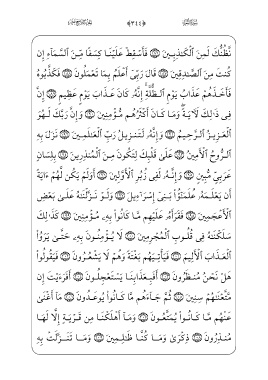 نَّظُنُّكَ لَمِنَ ٱلْكَـٰذِبِينَ ۝ فَأَسْقِطْ عَلَيْنَا كِسَفًا مِّنَ ٱلسَّمَآءِ إِن
كُنتَ مِنَ ٱلصَّـٰدِقِينَ ۝ قَالَ رَبِّىٓ أَعْلَمُ بِمَا تَعْمَلُونَ ۝ فَكَذَّبُوهُ
فَأَخَذَهُمْ عَذَابُ يَوْمِ ٱلظُّلَّةِ إِنَّهُۥ كَانَ عَذَابَ يَوْمٍ عَظِيمٍ ۝ إِنَّ
فِى ذَٰلِكَ لَـَٔايَةً وَمَا كَانَ أَكْثَرُهُم مُّؤْمِنِينَ ۝ وَإِنَّ رَبَّكَ لَهُوَ
ٱلْعَزِيزُ ٱلرَّحِيمُ ۝ وَإِنَّهُۥ لَتَنزِيلُ رَبِّ ٱلْعَـٰلَمِينَ ۝ نَزَلَ بِهِ
ٱلرُّوحُ ٱلْأَمِينُ ۝ عَلَىٰ قَلْبِكَ لِتَكُونَ مِنَ ٱلْمُنذِرِينَ ۝ بِلِسَانٍ
عَرَبِىٍّ مُّبِينٍ ۝ وَإِنَّهُۥ لَفِى زُبُرِ ٱلْأَوَّلِينَ ۝ أَوَلَمْ يَكُن لَّهُمْ ءَايَةً
أَن يَعْلَمَهُۥ عُلَمَـٰٓؤُا۟ بَنِىٓ إِسْرَٰٓءِيلَ ۝ وَلَوْ نَزَّلْنَـٰهُ عَلَىٰ بَعْضِ
ٱلْأَعْجَمِينَ ۝ فَقَرَأَهُۥ عَلَيْهِم مَّا كَانُوا۟ بِهِۦ مُؤْمِنِينَ ۝ كَذَٰلِكَ
سَلَكْنَـٰهُ فِى قُلُوبِ ٱلْمُجْرِمِينَ ۝ لَا يُؤْمِنُونَ بِهِۦ حَتَّىٰ يَرَوُا۟
ٱلْعَذَابَ ٱلْأَلِيمَ ۝ فَيَأْتِيَهُم بَغْتَةً وَهُمْ لَا يَشْعُرُونَ ۝ فَيَقُولُوا۟
هَلْ نَحْنُ مُنظَرُونَ ۝ أَفَبِعَذَابِنَا يَسْتَعْجِلُونَ ۝ أَفَرَءَيْتَ إِن
مَّتَّعْنَـٰهُمْ سِنِينَ ۝ ثُمَّ جَآءَهُم مَّا كَانُوا۟ يُوعَدُونَ ۝ مَآ أَغْنَىٰ
عَنْهُم مَّا كَانُوا۟ يُمَتَّعُونَ ۝ وَمَآ أَهْلَكْنَا مِن قَرْيَةٍ إِلَّا لَهَا
مُنذِرُونَ ۝ ذِكْرَىٰ وَمَا كُنَّا ظَـٰلِمِينَ ۝ وَمَا تَنَزَّلَتْ بِهِ